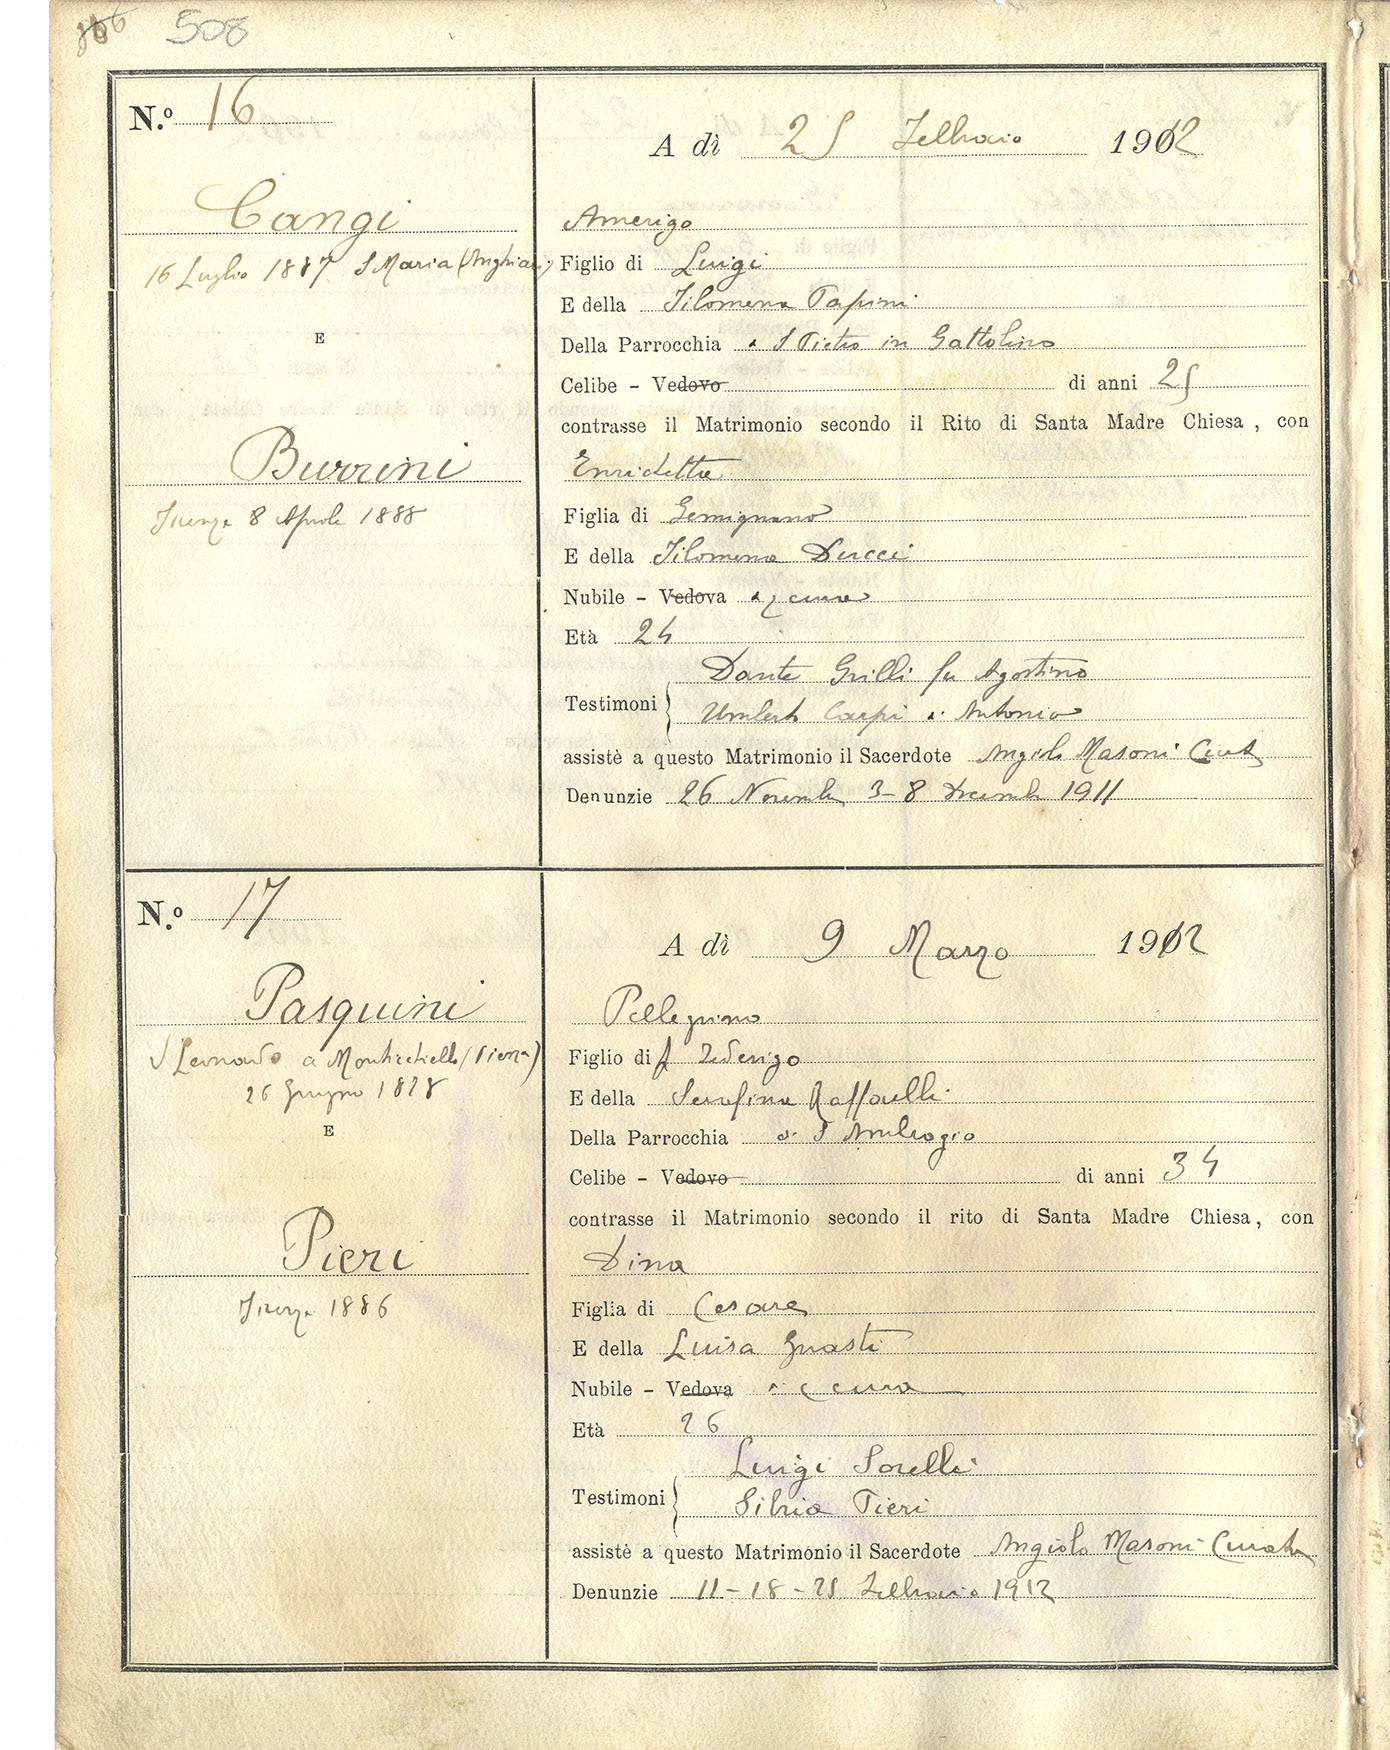 508
N.º 16
A dì 25 Febbraio 1912
Cangi
Amerigo
16 Luglio 1887 S Maria (Anghiari)
Figlio di Luigi
E della Filomena Papini
E
Della Parrocchia S Pietro in Gattolino
Celibe - Vedovo di anni 25
contrasse il Matrimonio secondo il Rito di Santa Madre Chiesa, con
Burrini
Enrichetta
Firenze 8 Aprile 1888
Figlia di Gemignano
E della Filomena Ducci
Nubile - Vedova di q cura
Età 24
Dante Grilli fu Agostino
Testimoni
Umberto Carpi di Antonio
assistè a questo Matrimonio il Sacerdote Angiolo Masoni Curato
Denunzie 26 Novembre 3-8 Dicembre 1911
N.º 17
A dì 9 Marzo 1912
Pasquini
Pellegrino
S Leonardo a Monticchiello (Pienza)
Figlio di f Federigo
26 Giugno 1878
E della Serafina Raffaelli
E
Della Parrocchia di S Ambrogio
Celibe - Vedovo di anni 34
contrasse il Matrimonio secondo il rito di Santa Madre Chiesa, con
Pieri
Dina
Firenze 1886
Figlia di Cesare
E della Luisa Guasti
Nubile - Vedova cura
Età 26
Luigi Sorelli
Testimoni
Silvia Pieri
assistè a questo Matrimonio il Sacerdote Angiolo Masoni Curato
Denunzie 11-18-25 Febbraio 1912